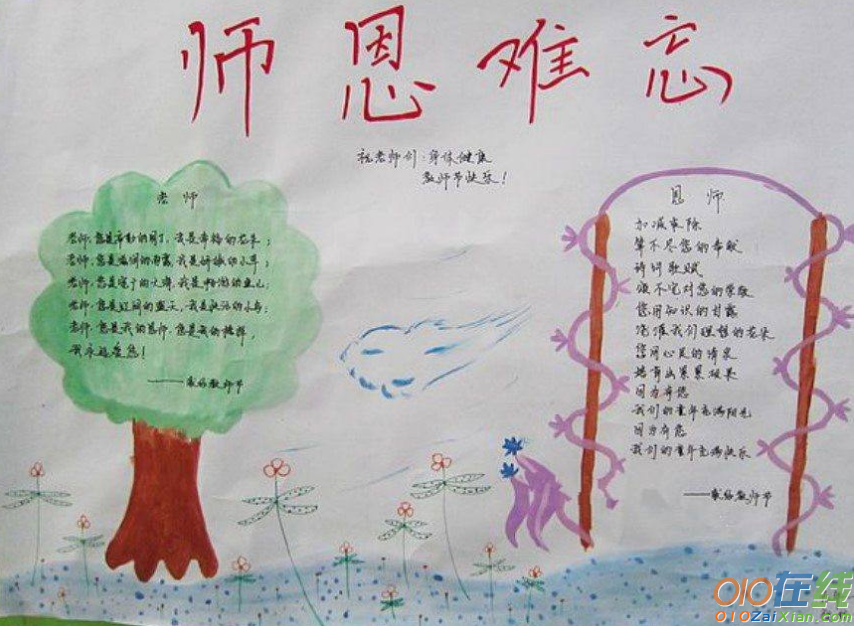 师恩难忘
祝老师们:身体健康
教师节快乐!
老师
老师,您是辛勤的园丁,我是幸福的花朵;
老师,您是滋润的雨露,我是娇嫩的小草;
老师,您是宽广的大海,我是畅游的鱼儿;
老师,您是辽阔的蓝天,我是快活的小鸟;
老师,您是我的恩师,您是我的榜样,
我永远爱您!
——献给教师节
恩师
加减乘除
算不尽您的奉献
诗词歌赋
颂不完对您的崇敬
您用知识的甘露
浇灌我们理想的花朵
您用心灵的清泉
培育出累累硕果
因为有您
我们的童年充满阳光
因为有您
我们的童年充满快乐
——献给教师节
010在线
010ZaiXian.com